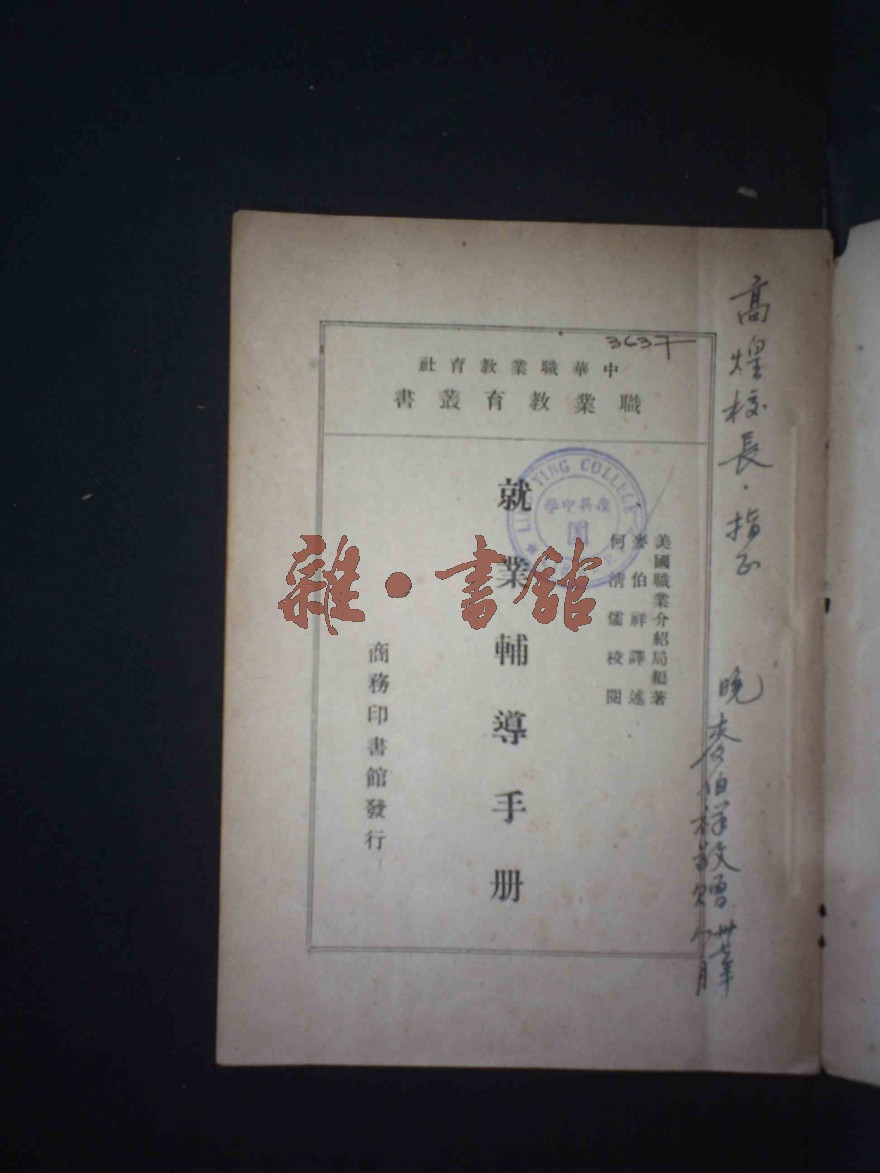 3637
中華職業教育社
職業教育叢書
美國職業介紹局編著
麥伯祥譯述
何清儒校閱
就業輔導手册
商務印書館發行
YING COLLEGE
英中學
圖
雜·書館
高煌校長·指正
晚麥伯祥敬贈
卅七年八月